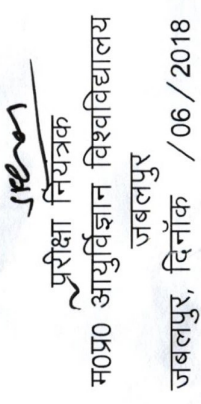 परीक्षा नियंत्रक
म०प्र० आयुर्विज्ञान विश्वविद्यालय
जबलपुर
जबलपुर, दिनॉक /06/2018